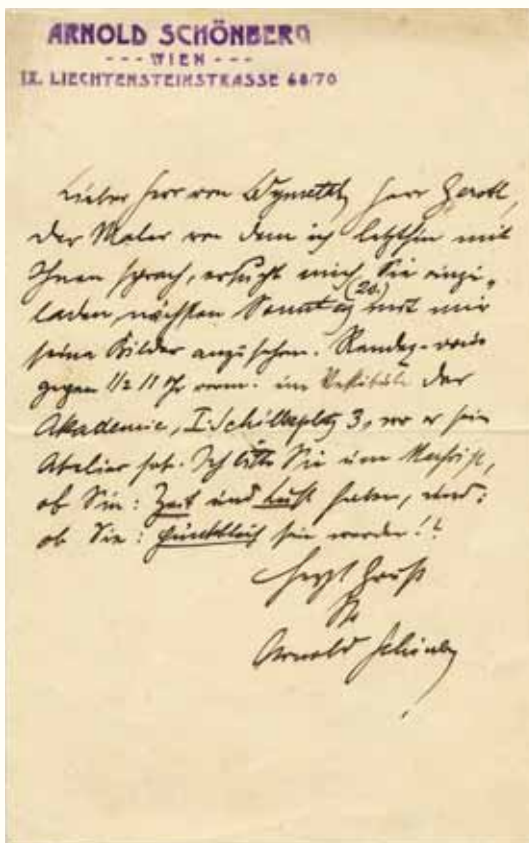 ARNOLD SCHÖNBERG
--- WIEN ---
IX. LIECHTENSTEINSTRASSE 68/70
Lieber Herr von Wymetal, Herr
der Maler von dem ich letzthin mit
Ihnen sprach, ersucht mich, Sie einzu-
laden, nächsten Sonntag (20.) mit mir
seine Bilder anzusehen. Rendez-vous
gegen 1/2 11 Uhr vorm. im Vestibule der
Akademie, I. Schillerplatz 3, wo er sein
Atelier hat. Ich bitte Sie um Nachricht,
ob Sie: Zeit und Lust haben, und:
ob Sie: pünktlich sein werden!?
Herzl Gruß
Ihr
Arnold Schönberg